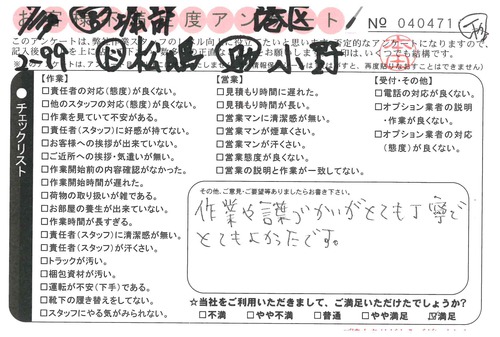 お客様満足度アンケート
№ 040471
港区
小野
このアンケートは、弊社作業スタッフの
【作業】
□責任者の対応(態度)が良くない。
□他のスタッフの対応(態度)が良くない。
□作業を見ていて不安がある。
□責任者(スタッフ)に好感が持てない。
□お客様への挨拶が出来ていない。
□ご近所への挨拶・気遣いが無い。
□作業開始前の内容確認がなかった。
□作業開始時間が遅れた。
□荷物の取り扱いが雑である。
□お部屋の養生が出来ていない。
□作業時間が長すぎる。
□責任者(スタッフ)に清潔感が無い。
□責任者(スタッフ)が汗くさい。
□トラックが汚い。
□梱包資材が汚い。
□運転が不安(下手)である。
□靴下の履き替えをしてない。
□スタッフにやる気がみられない。
【営業】
□見積もり時間に遅れた。
□見積もり時間が長い。
□営業マンに清潔感が無い。
□営業マンが煙草くさい。
□営業マンが汗くさい。
□営業態度が良くない。
□営業の説明と作業が一致してない。
【受付・その他】
□電話の対応が良くない。
□オプション業者の説明
・作業が良くない。
□オプション業者の対応
(態度)が良くない。
●チェックリスト
その他、ご意見・ご要望等ありましたらお書き下さい。
作業や言葉づかいがとても丁寧で
とてもよかったです。
☆当社をご利用いただきまして、ご満足いただけてでしょうか?
□不満 □やや不満 □普通 □やや満足 ☑満足